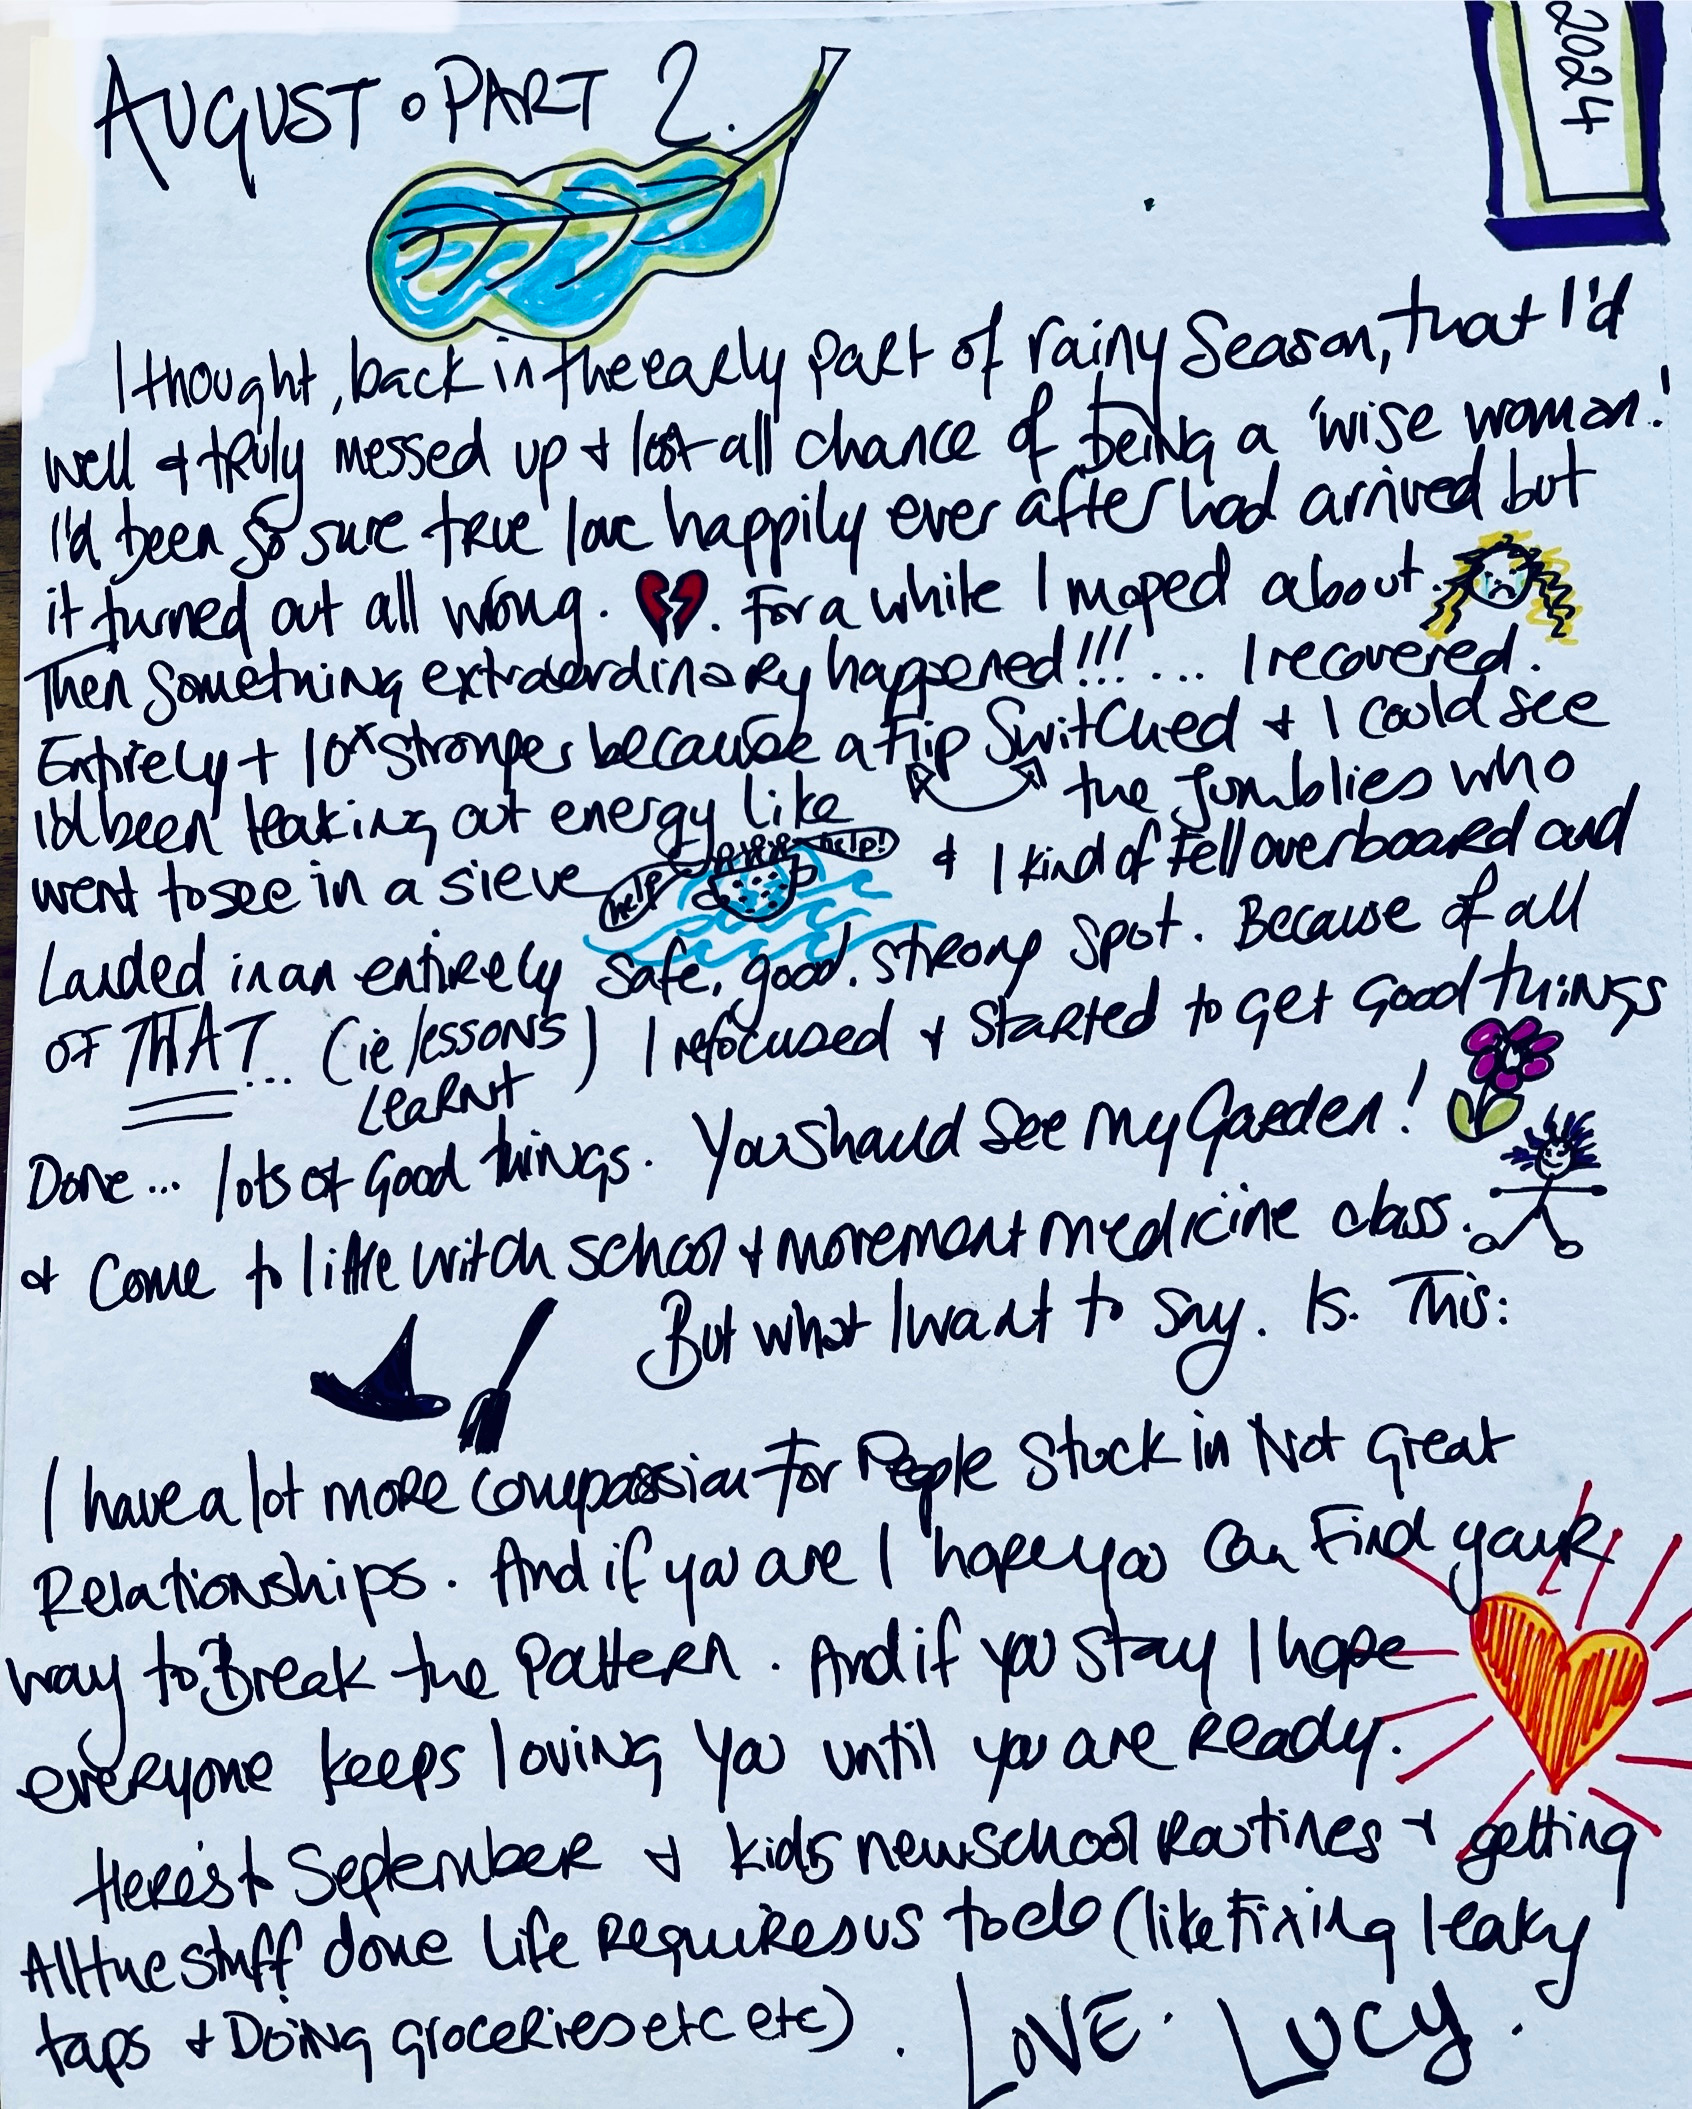 AUGUST • PART 2.
2024
I thought, back in the early part of rainy Season, that I'd
well & truly messed up & lost all chance of being a 'wise woman.'
I'd been so sure true love happily ever after had arrived but
it turned out all wrong. . For a while I moped about.
Then Something extraordinary happened!!! ... I recovered.
Entirely + 10x stronger because a Flip Switched & I could see
I'd been leaking out energy like the Jumblies who
went to see in a sieve & I kind of Fell overboard and
help
help!
Landed in an entirely safe, good, strong spot. Because of all
of THAT... (ie lessons learnt) I refocused & started to get Good things
Done... lots of Good things. You should see My Garden!
& Come to little witch school & movement medicine class.
But what I want to say. Is. This:
I have a lot more compassion for People Stuck in Not Great
Relationships. And if you are I hope you can Find your
way to Break the Pattern. And if you stay I hope
everyone keeps loving You until you are Ready.
Here's to September & kids new school Routines & getting
All the stuff done Life Requires us to do (like Fixing leaky
taps & Doing Groceries etc etc) . LOVE. LUCY.